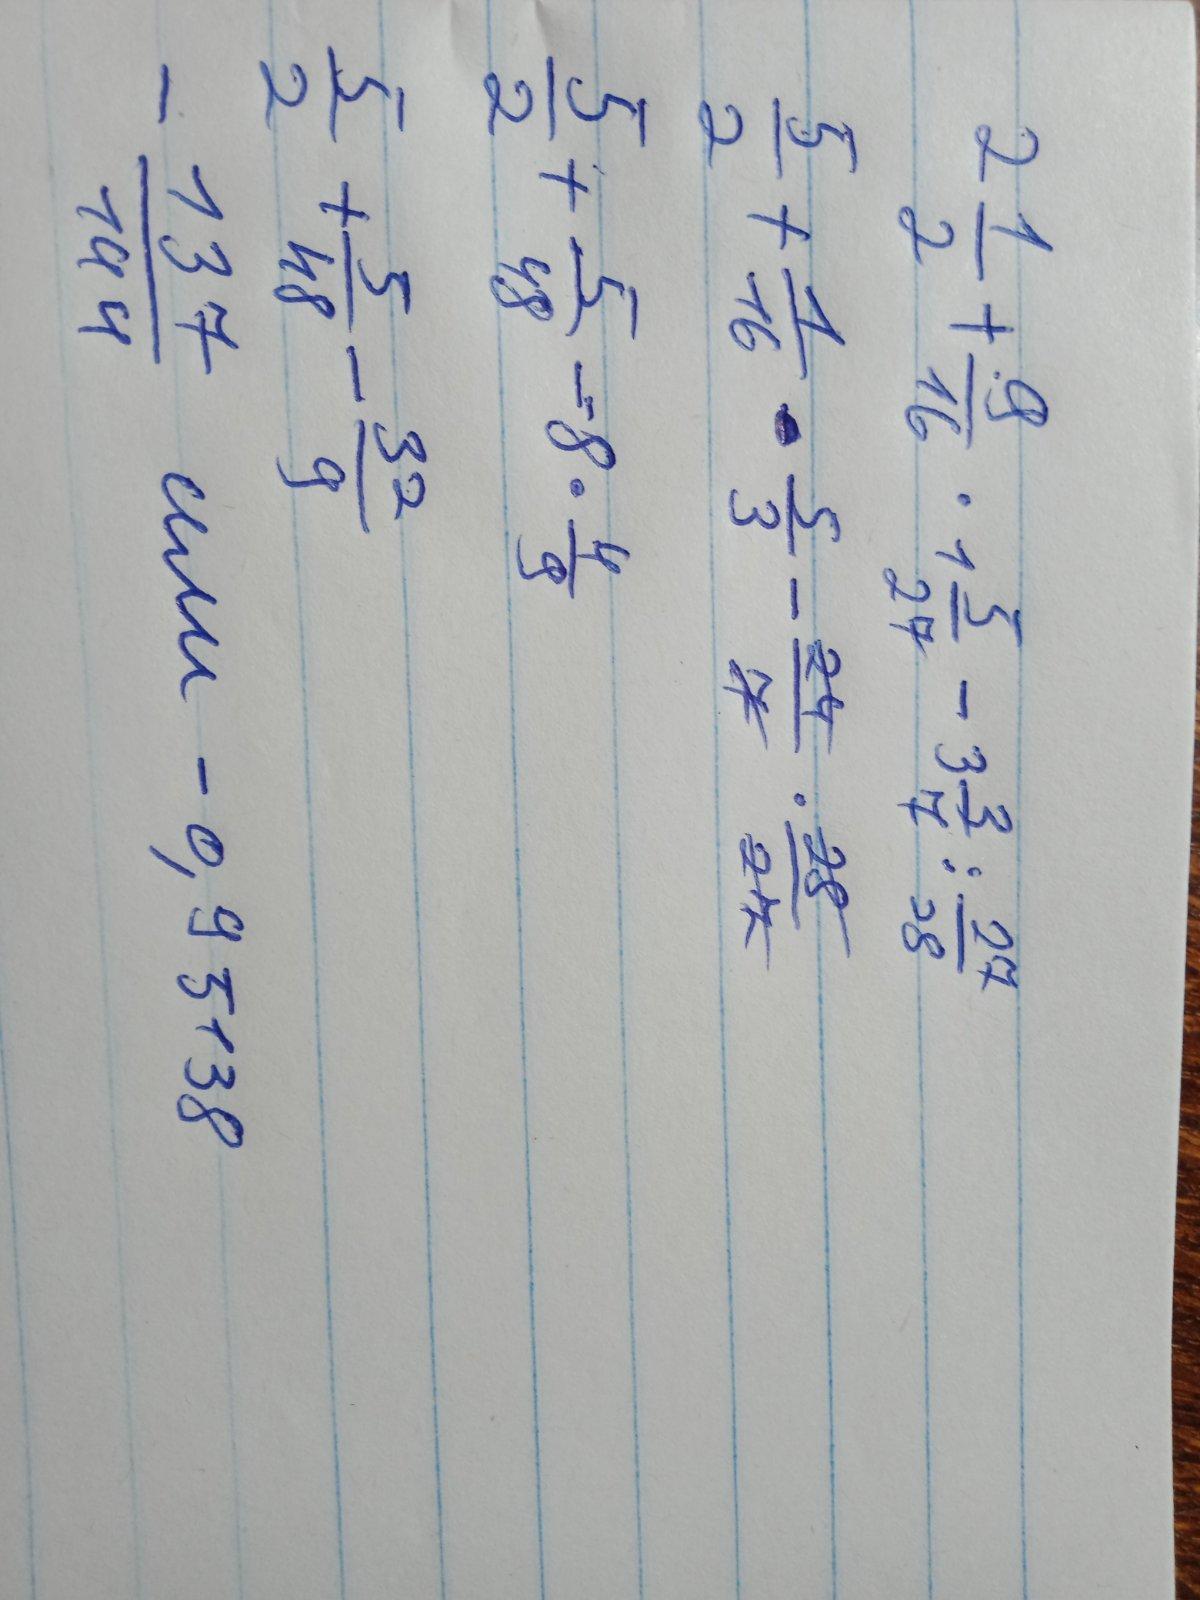 2 1/2 + 9/16 · 1 5/27 - 3 3/7 : 27/28
5/2 + 1/16 · 5/3 - 24/7 · 28/27
5/2 + 5/48 - 8 · 4/9
5/2 + 5/48 - 32/9
- 137/144 или - 0,95138